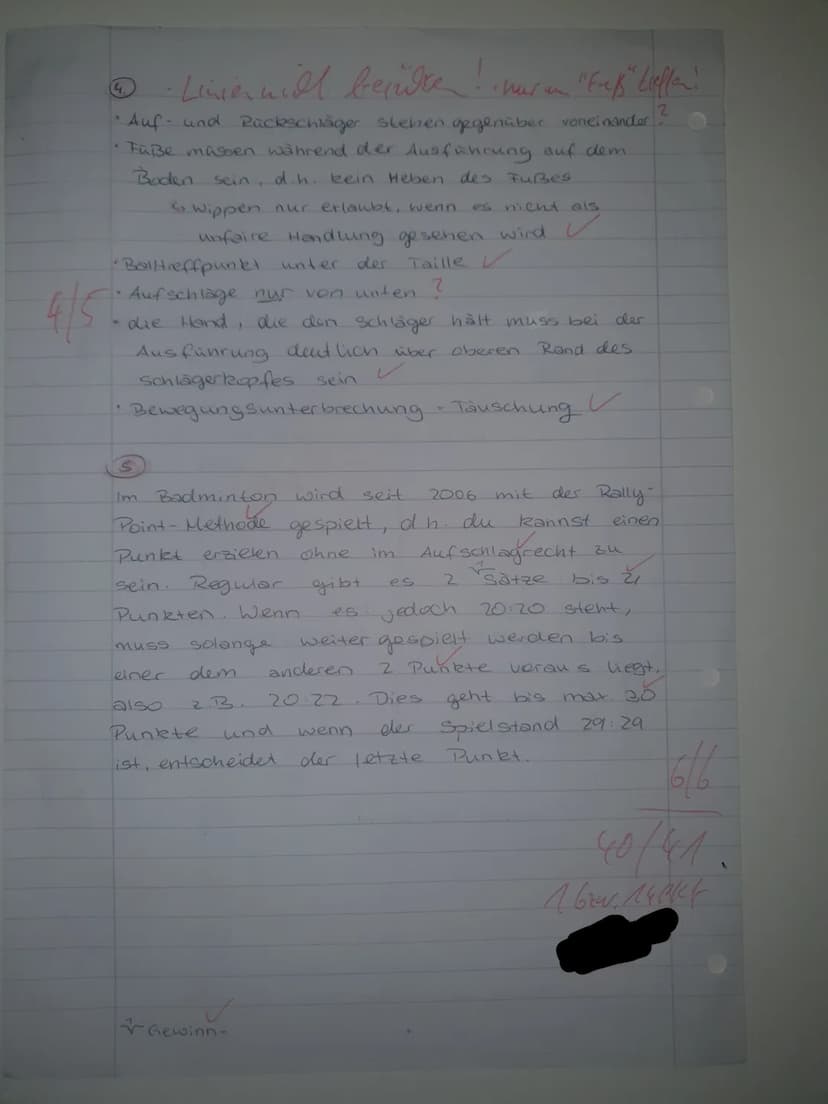 4. · Linie nicht berühren! · nur am "Fuß" treffen!
· Auf- und Rückschläger stehen gegenüber voneinander ?
· Füße müssen während der Ausführung auf dem
Boden sein, d.h. kein Heben des Fußes
↳ Wippen nur erlaubt, wenn es nicht als
unfaire Handlung gesehen wird ✓
· Balltreffpunkt unter der Taille ✓
· Aufschläge nur von unten ?
4/5
· die Hand, die den Schläger hält muss bei der
Ausführung deutlich über oberen Rand des
Schlägerkopfes sein ✓
· Bewegungsunterbrechung - Täuschung ✓
5
Im Badminton wird seit 2006 mit der Rally-
Point-Methode gespielt, d.h. du kannst einen
Punkt erzielen ohne im Aufschlagrecht zu
sein. Regulär gibt es 2 Sätze bis 21
Punkten. Wenn es jedoch 20:20 steht,
muss solange weiter gespielt werden bis
einer dem anderen 2 Punkte voraus liegt,
also z.B. 20:22. Dies geht bis max. 30
Punkte und wenn der Spielstand 29:29
ist, entscheidet der letzte Punkt.
6/6
40/41
1 bzw. 14 Pkt
Gewinn- ✓